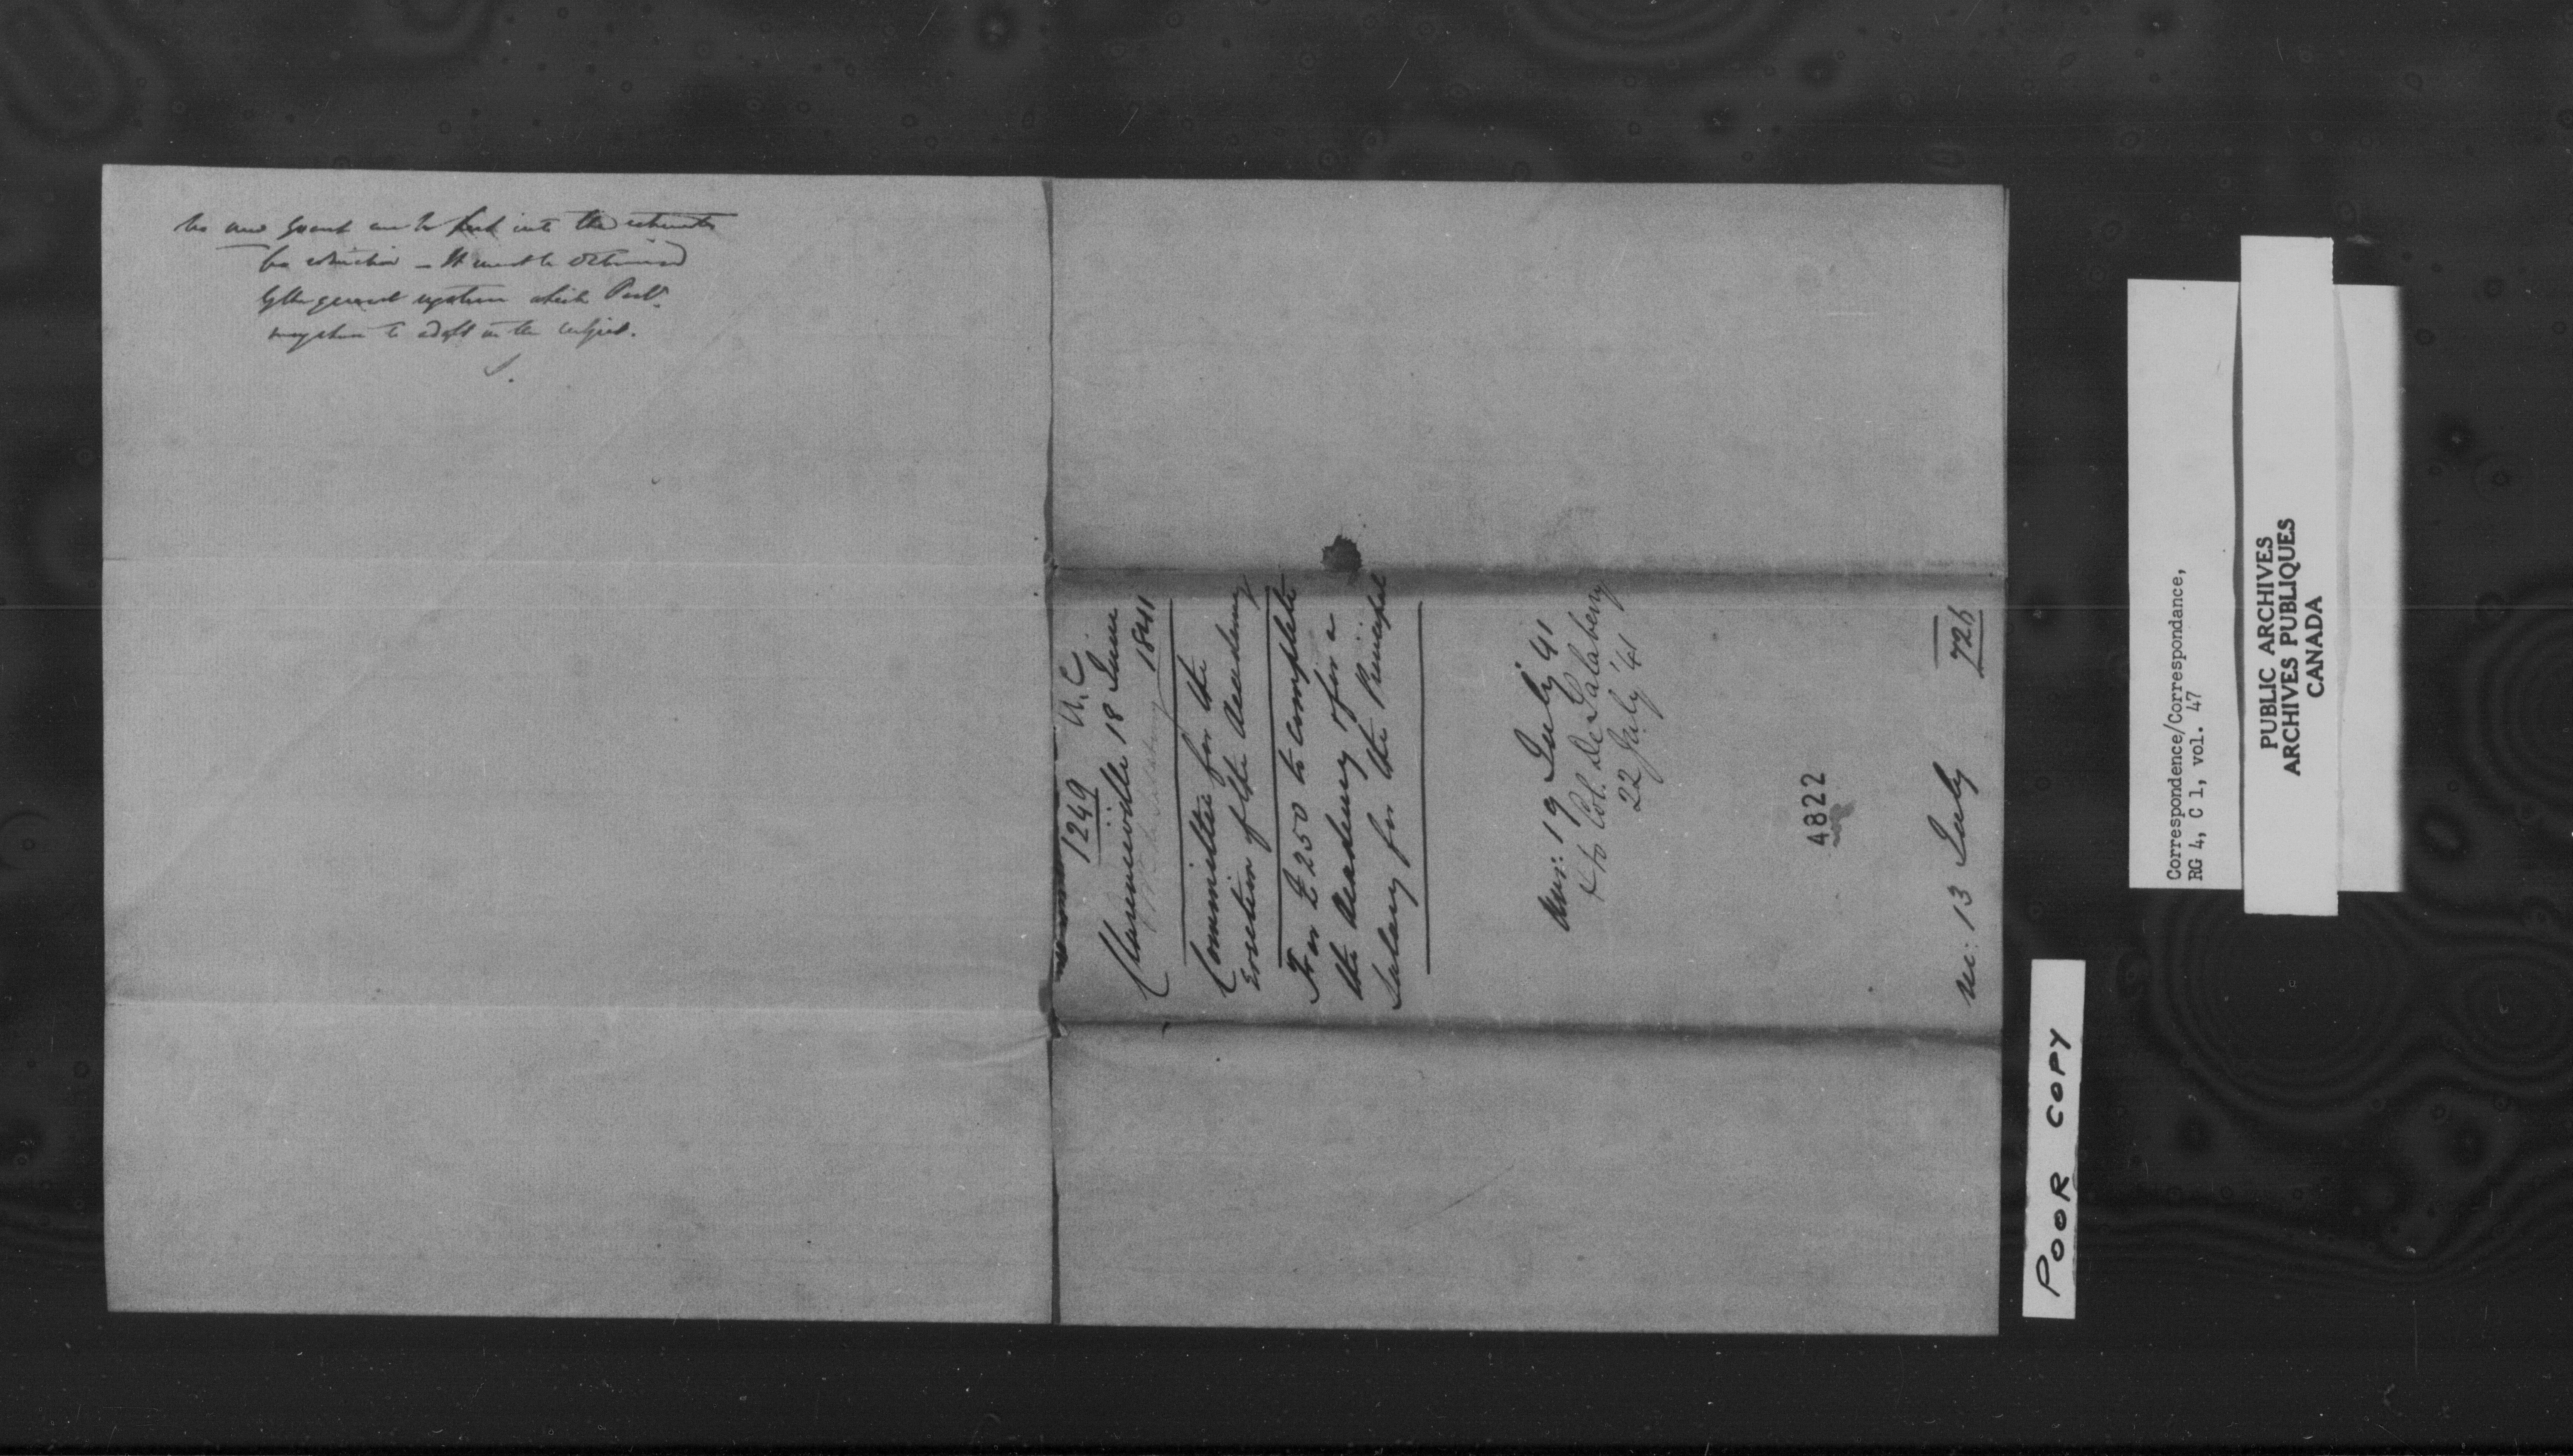 No new grant can be put into the estimates
for education – It must be determined
by the general system which Parlt.
may choose to adopt on the subject.
S.
1249 U.C.
18 June
1841
Committee for the
Erection of the Academy
For £250 to complete
the Academy & for a
Salary for the Principal
Ans: 19 July 41
to Col. De Salaberry
22 July '41
4822
Rec: 13 July 726
POOR COPY
Correspondence/Correspondance,
RG 4, C 1, vol. 47
PUBLIC ARCHIVES
ARCHIVES PUBLIQUES
CANADA